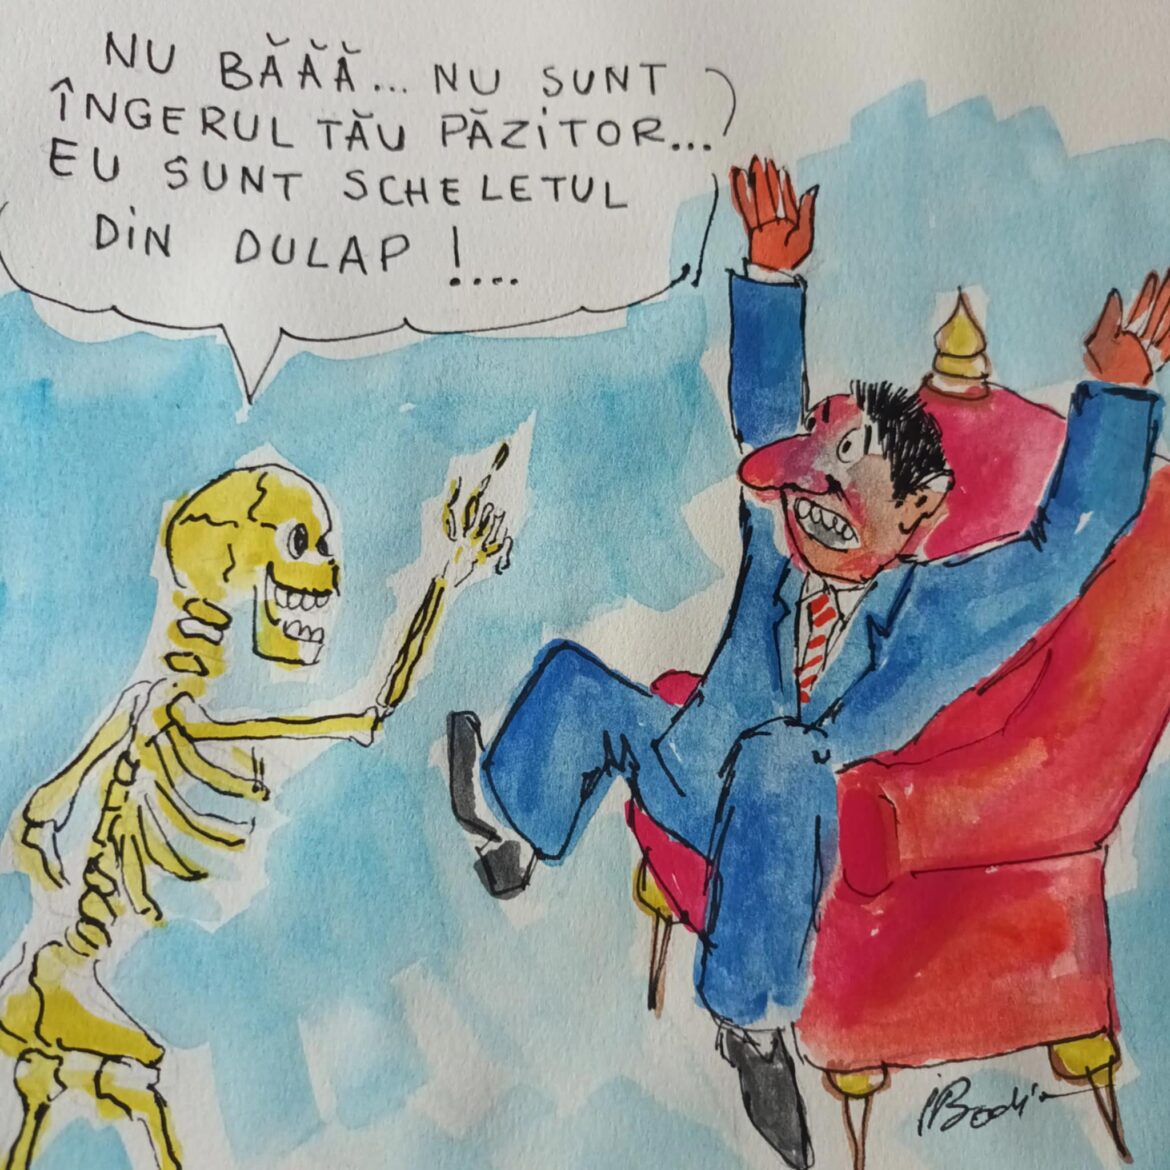 NU BĂĂĂ... NU SUNT
ÎNGERUL TĂU PĂZITOR...
EU SUNT SCHELETUL
DIN DULAP !....